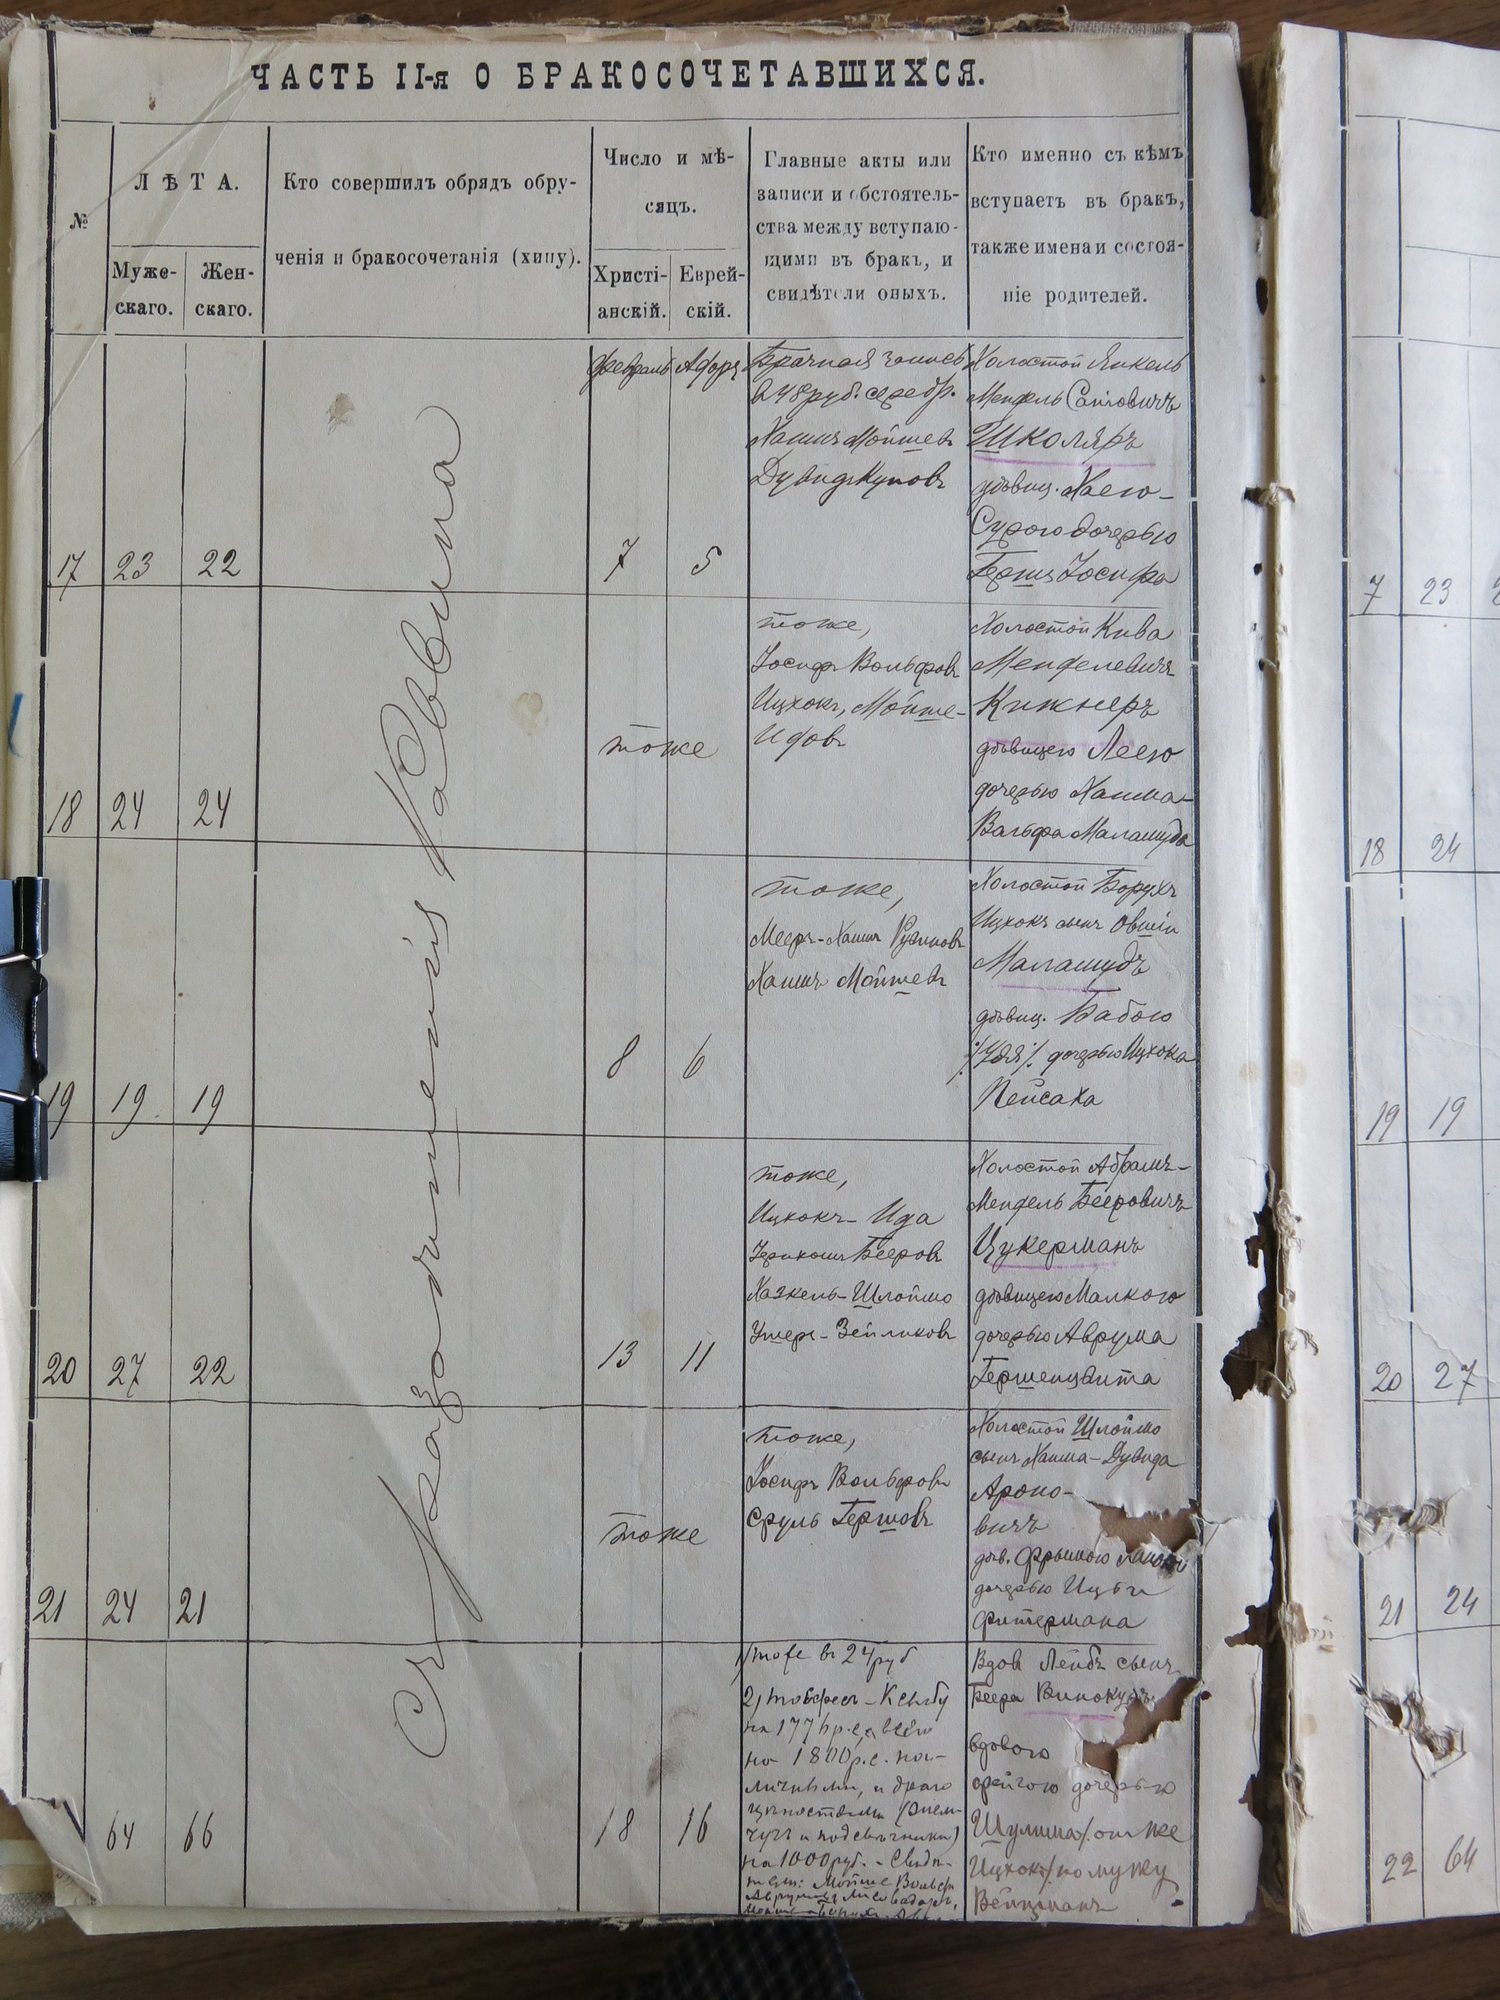 ЧАСТЬ II-я О БРАКОСОЧЕТАВШИХСЯ.
№
ЛѢТА.
Муже-
скаго.
Жен-
скаго.
Кто совершилъ обрядъ обру-
ченія и бракосочетанія (хипу).
Число и мѣ-
сяцъ.
Христі-
анскій.
Еврей-
скій.
Главные акты или
записи и обстоятель-
ства между вступаю-
щими въ бракъ, и
свидѣтели оныхъ.
Кто именно съ кѣмъ
вступаетъ въ бракъ,
также имена и состоя-
ніе родителей.
17
23
22
февраль
7
5
Брачная запись
в 48 руб. серебр.
Хаимъ Мойшев
Холостой Янкель
Мендель
Школяръ
дѣвиц. Хаею-
Сурою дочерью
Герша Іосифа
18
24
24
тоже
тоже,
Іосифъ Вольфовъ
Ицхокъ, Мойше-
Идовъ
Холостой Кива
Менделевичъ
Кижнеръ
дѣвицею Леею
дочерью Хаима-
Вольфа Маламуда
19
19
19
8
6
тоже,
Мееръ-Хаимъ
Хаимъ Мойшевъ
Холостой Борухъ
Ицхокъ сынъ Овшіи
Маламудъ
дѣвиц. Бабою
дочерью Ицхока
Пейсаха
20
27
22
13
11
тоже,
Ицхокъ-Ида
Бееровъ
Хаскель-Шлоймо
Ушеръ-Зейликовъ
Холостой Абрамъ-
Мендель Бееровичъ
Цукерманъ
дѣвицею Малкою
дочерью Аврума
Гершенцвита
21
24
21
тоже
тоже,
Іосифъ Вольфовъ
Сруль Гершовъ
Холостой Шлоймо
сынъ Хаима-Дувида
Ароно-
вичъ
дѣв. Фрымою
дочерью
Фитермана
64
66
18
16
1) тоже в 24 руб
2)
на 1800 р.с. на-
личными, и драго
цѣнностями
и подсвѣчники)
на 1000 руб. - Свидѣ-
тели: Мойше
Вдов Лейбъ сынъ
Беера Винокуръ
вдовою
дочерью
Шулима/. онъ же
Ицхокъ/ по мужу
Вейцманъ
Съ разрѣшенія Раввина
7
23
18
24
19
19
20
27
21
24
22
64